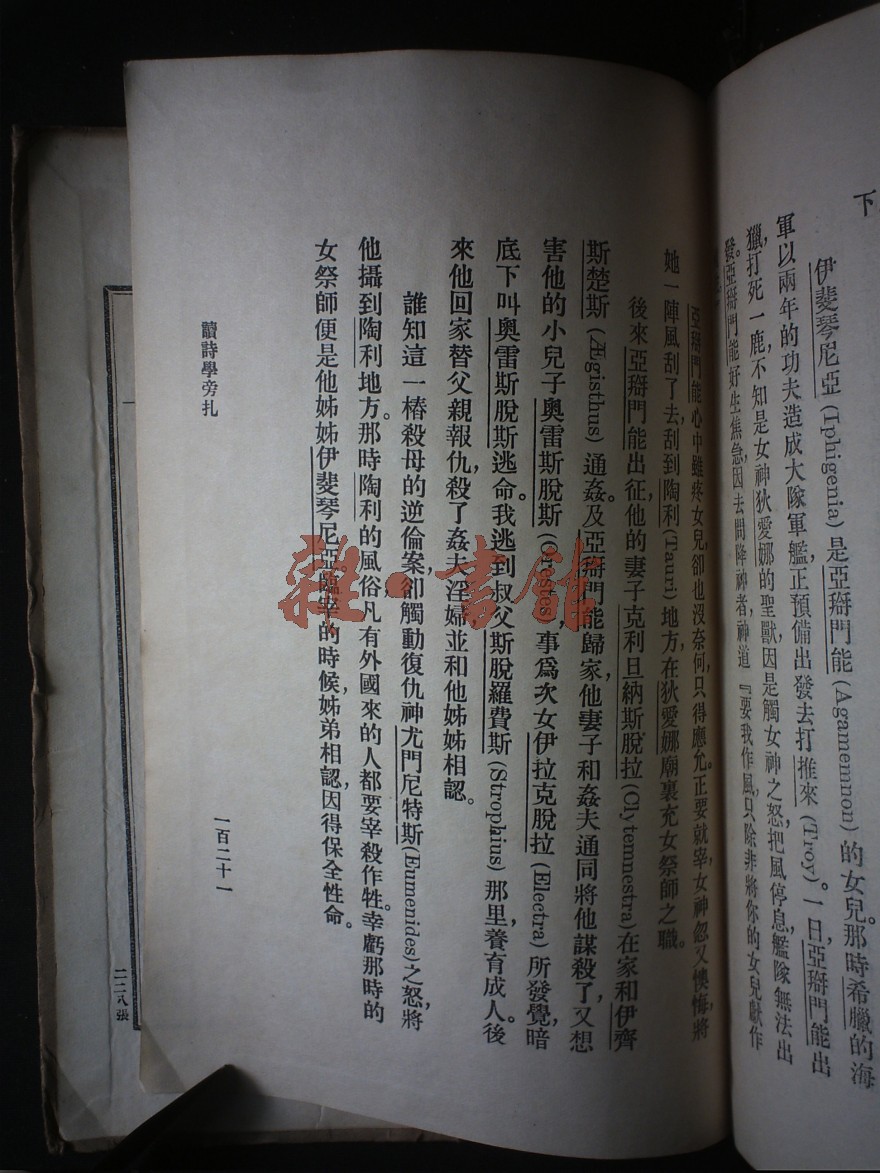 下
伊斐琴尼亞(Iphigenia)是亞搿門能(Agamemnon)的女兒。那時希臘的海
軍以兩年的功夫造成大隊軍艦,正預備出發去打推來(Troy)。一日,亞搿門能出
獵,打死一鹿,不知是女神狄愛娜的聖獸,因是觸女神之怒,把風停息,艦隊無法出
發。亞搿門能好生焦急,因去問降神者,神道『要我作風,只除非將你的女兒獻作
亞搿門能心中雖疼女兒,卻也沒奈何,只得應允。正要就宰,女神忽又懊悔,將
她一陣風刮了去,刮到陶利(Tauri)地方,在狄愛娜廟裏充女祭師之職。
後來亞搿門能出征,他的妻子克利旦納斯脫拉(Clytemnestra)在家和伊齊
斯楚斯(Ægisthus)通姦。及亞搿門能歸家,他妻子和姦夫通同將他謀殺了,又想
害他的小兒子奧雷斯脫斯(Orestes 事為次女伊拉克脫拉(Electra)所發覺,暗
底下叫奧雷斯脫斯逃命。我逃到叔父斯脫羅費斯(Strophius)那里,養育成人。後
來他回家替父親報仇,殺了姦夫淫婦,並和他姊姊相認。
誰知這一樁殺母的逆倫案,卻觸動復仇神尤門尼特斯(Eumenides)之怒,將
他攝到陶利地方。那時陶利的風俗,凡有外國來的人都要宰殺作牲。幸虧那時的
女祭師便是他姊姊伊斐琴尼亞。臨宰的時候,姊弟相認,因得保全性命。
讀詩學旁扎
一百二十一
二二八張
雜·書館